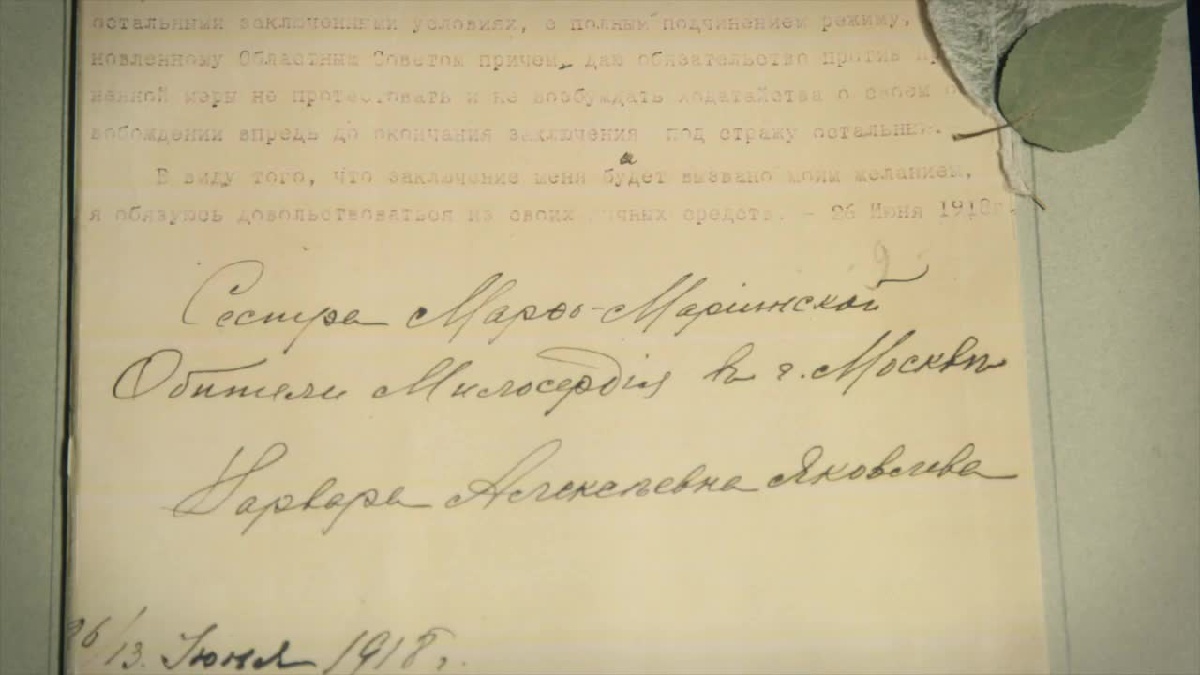 остальными заключенными условиях, с полным подчинением режиму,
новленному Областным Советом причем, даю обязательство против
нанной меры не протестовать и не возбуждать ходатайства о своем
вобождении впредь до окончания заключения под стражу остальных.
В виду того, что заключение меня будет вызвано моим желанием,
я обязуюсь довольствоваться из своих личных средств. - 26 Июня 1918г.
Сестра Марфо-Маріинской
Обители Милосердія въ г. Москвѣ
Варвара Алексѣевна Яковлева
26/13. Июня 1918 г.